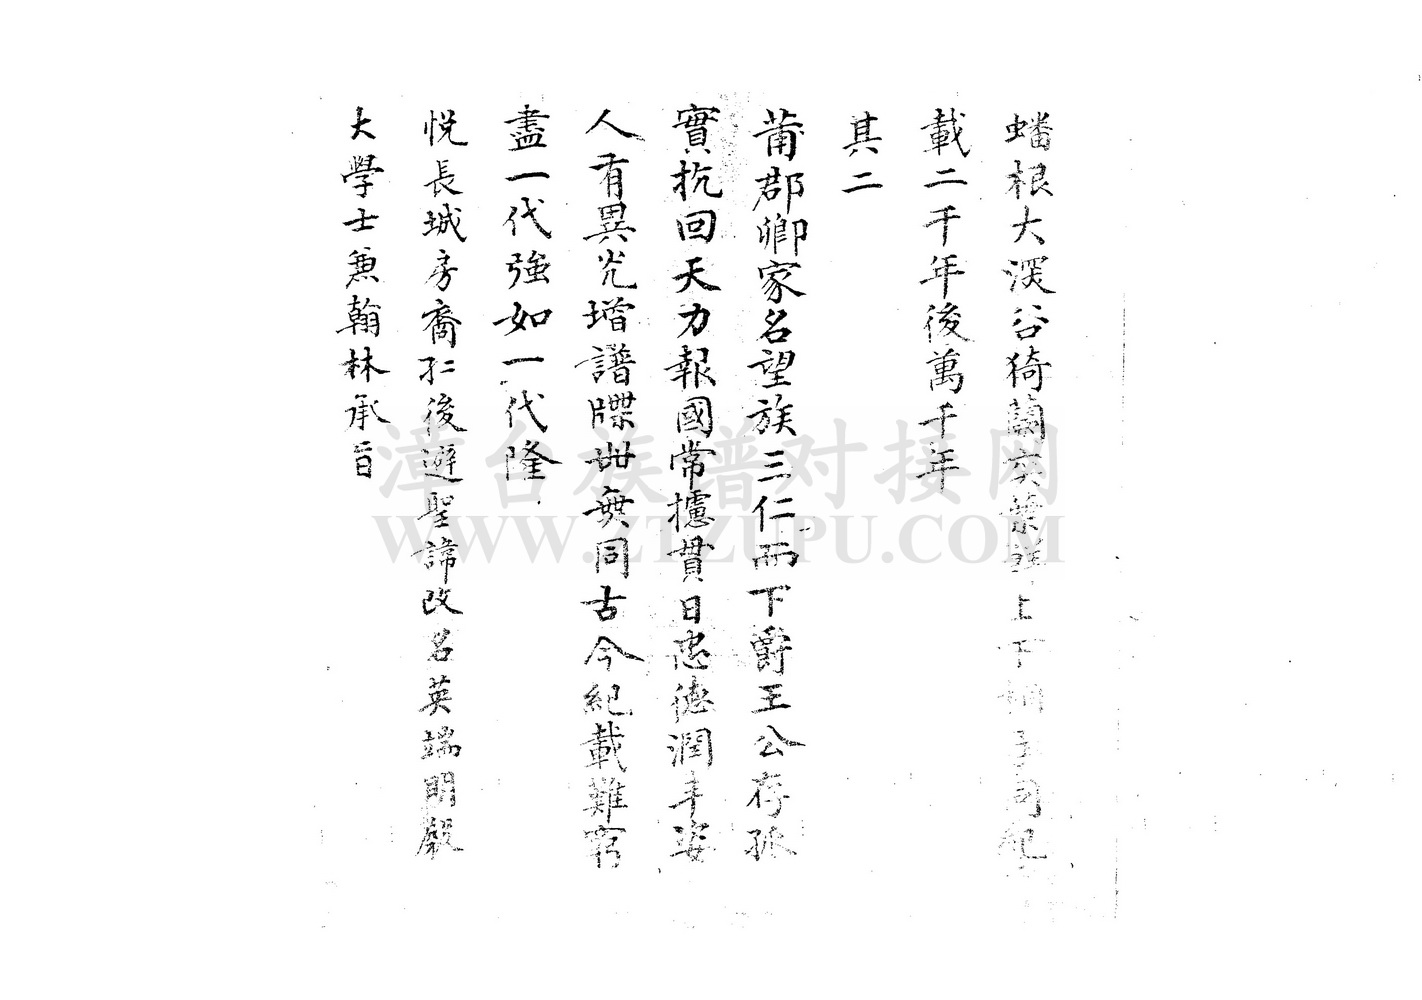 蟠根大深谷猗蘭奕葉上下
載二千年後萬千年
其二
莆郡卿家名望族三仁而下爵王公存孤
實抗回天力報國常攄貫日忠德潤丰姿
人有異光增譜牒世無同古今紀載難窮
盡一代強如一代隆
悅長城房裔孔後避聖諱改名英端明殿
大學士兼翰林承旨
漳台族谱对接网
WWW.ZTZUPU.COM